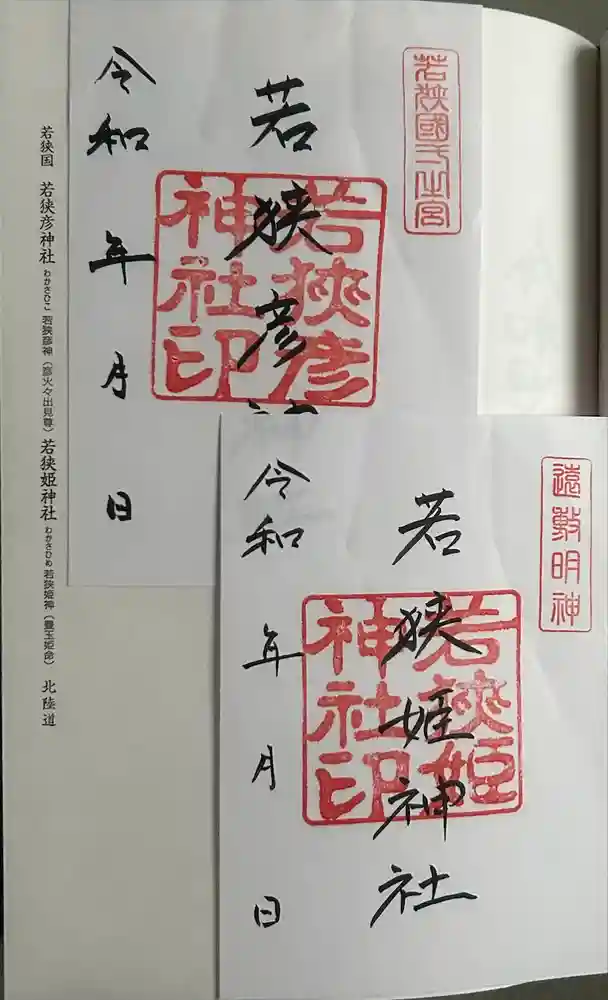 若狭國一之宮
若狭彦神
若狭彦
神社印
令和 年 月 日
遠敷明神
若狭姫神社
若狭姫
神社印
令和 年 月 日
若狭国 若狭彦神社 わかさひこ 若狭彦神（彦火々出見尊） 若狭姫神社 わかさひめ 若狭姫神（豊玉姫命） 北陸道